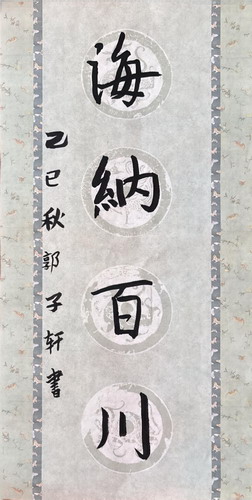 海納百川
乙巳秋郭子轩書